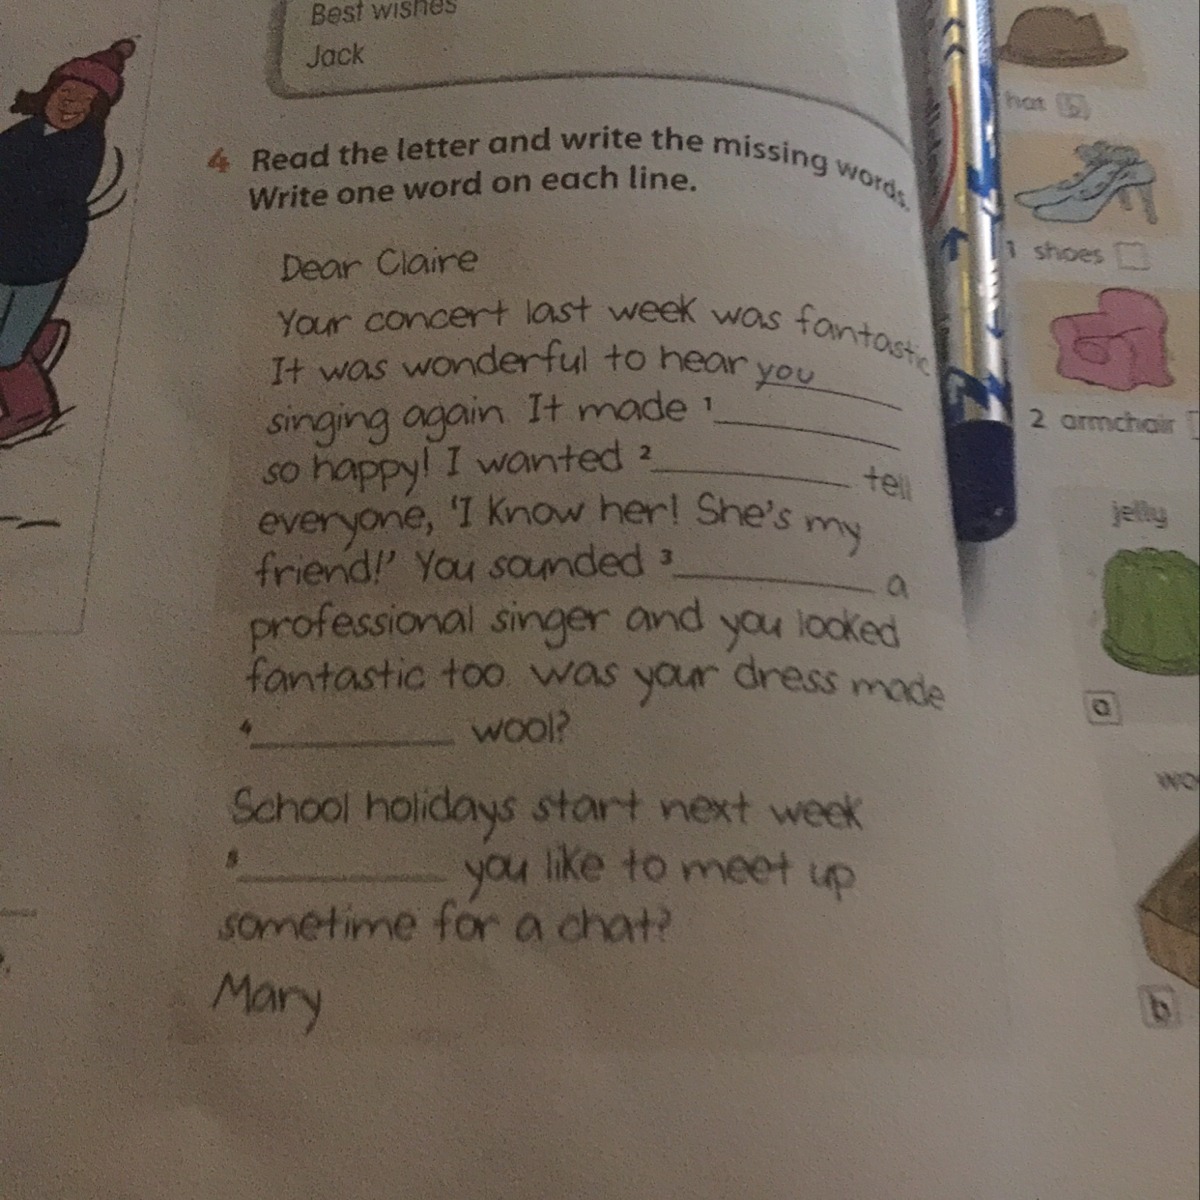 Best wishes
Jack
4 Read the letter and write the missing words.
Write one word on each line.
Dear Claire
Your concert last week was fantastic
It was wonderful to hear you
singing again. It made 1
so happy! I wanted 2 tell
everyone, 'I know her! She's my
friend!' You sounded 3 a
professional singer and you looked
fantastic too. was your dress made
4 wool?
School holidays start next week
5 you like to meet up
sometime for a chat?
Mary
hat b
1 shoes
2 armchair
jelly
a
b